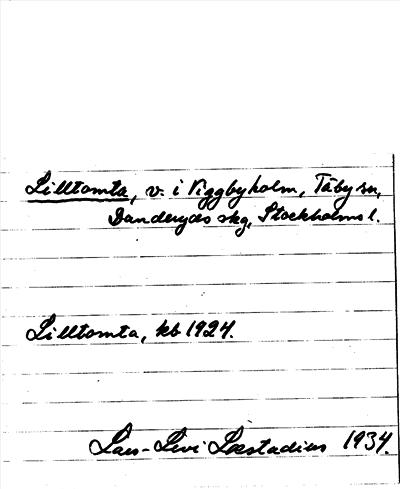 Lilltomta, v. i Viggbyholm, Täby sn,
Danderyds skg, Stockholms l.
Lilltomta, kb 1924.
Lars-Levi Læstadius 1934.